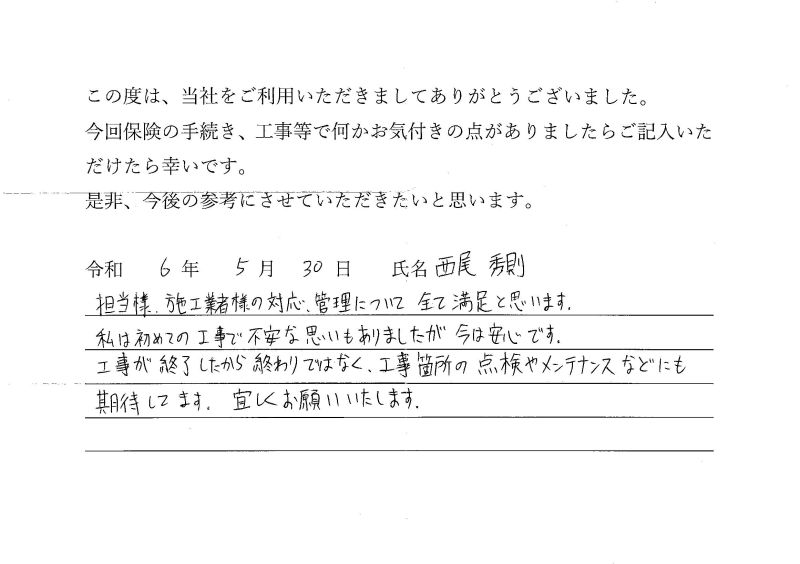 この度は、当社をご利用いただきましてありがとうございました。
今回保険の手続き、工事等で何かお気付きの点がありましたらご記入いた
だけたら幸いです。
是非、今後の参考にさせていただきたいと思います。
令和 6 年 5 月 30 日 氏名 西尾 秀則
担当様、施工業者様の対応、管理について 全て満足と思います。
私は初めての工事で不安な思いもありましたが今は安心です。
工事が終了したから終わりではなく、工事箇所の点検やメンテナンスなどにも
期待してます。宜しくお願いいたします。